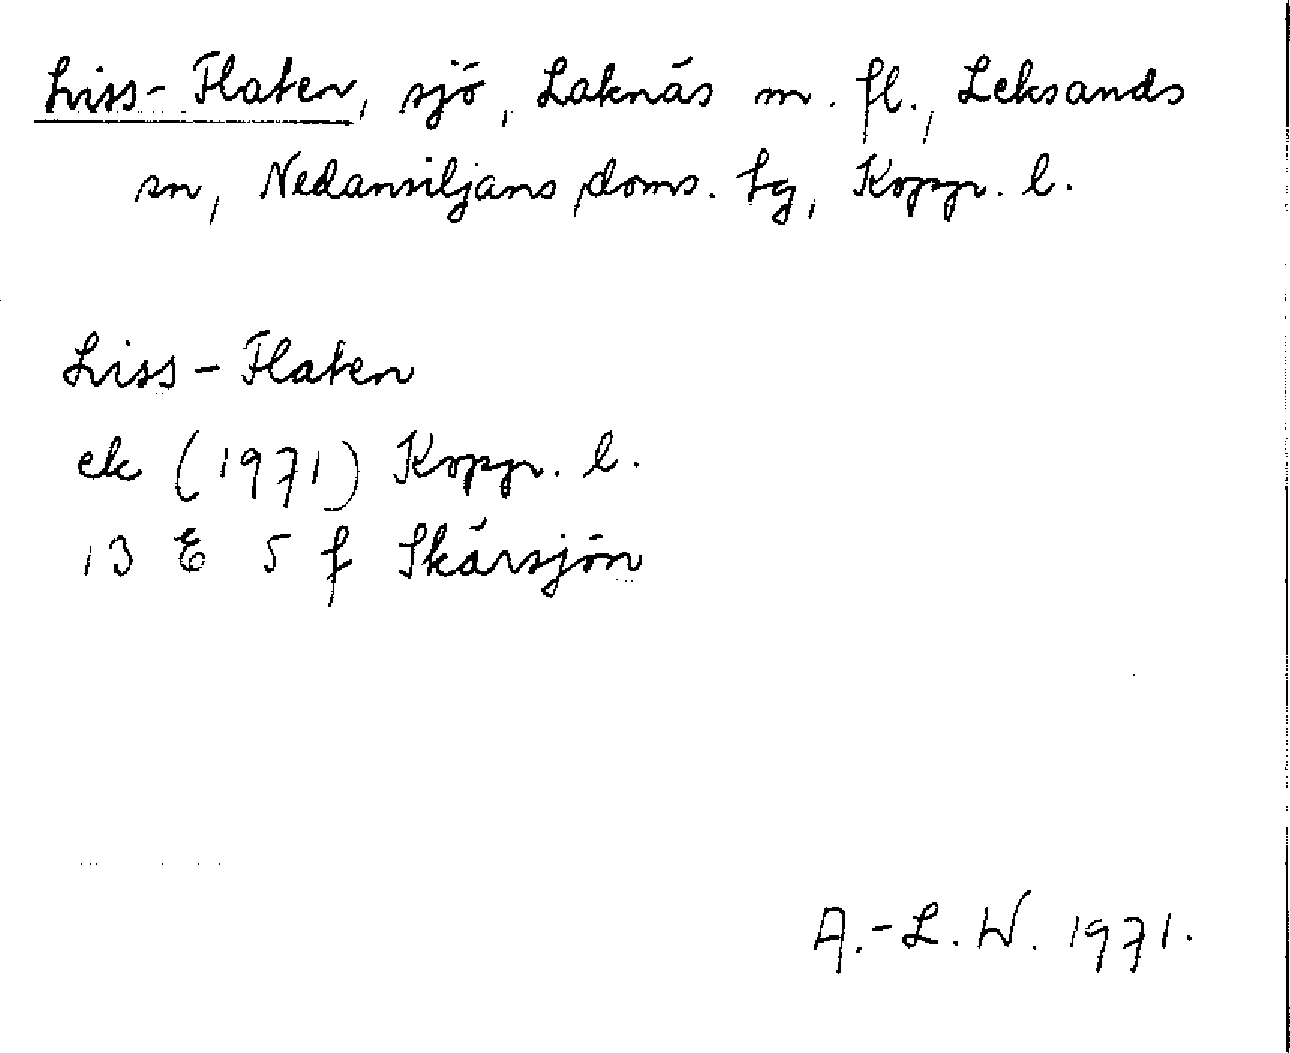 Liss-Flaten, sjö, Laknäs m. fl., Leksands
sn, Nedansiljans doms. tg, Kopp. l.
Liss-Flaten
ek (1971) Kopp. l.
13 E 5 f Skärsjön
A.-L. W. 1971.